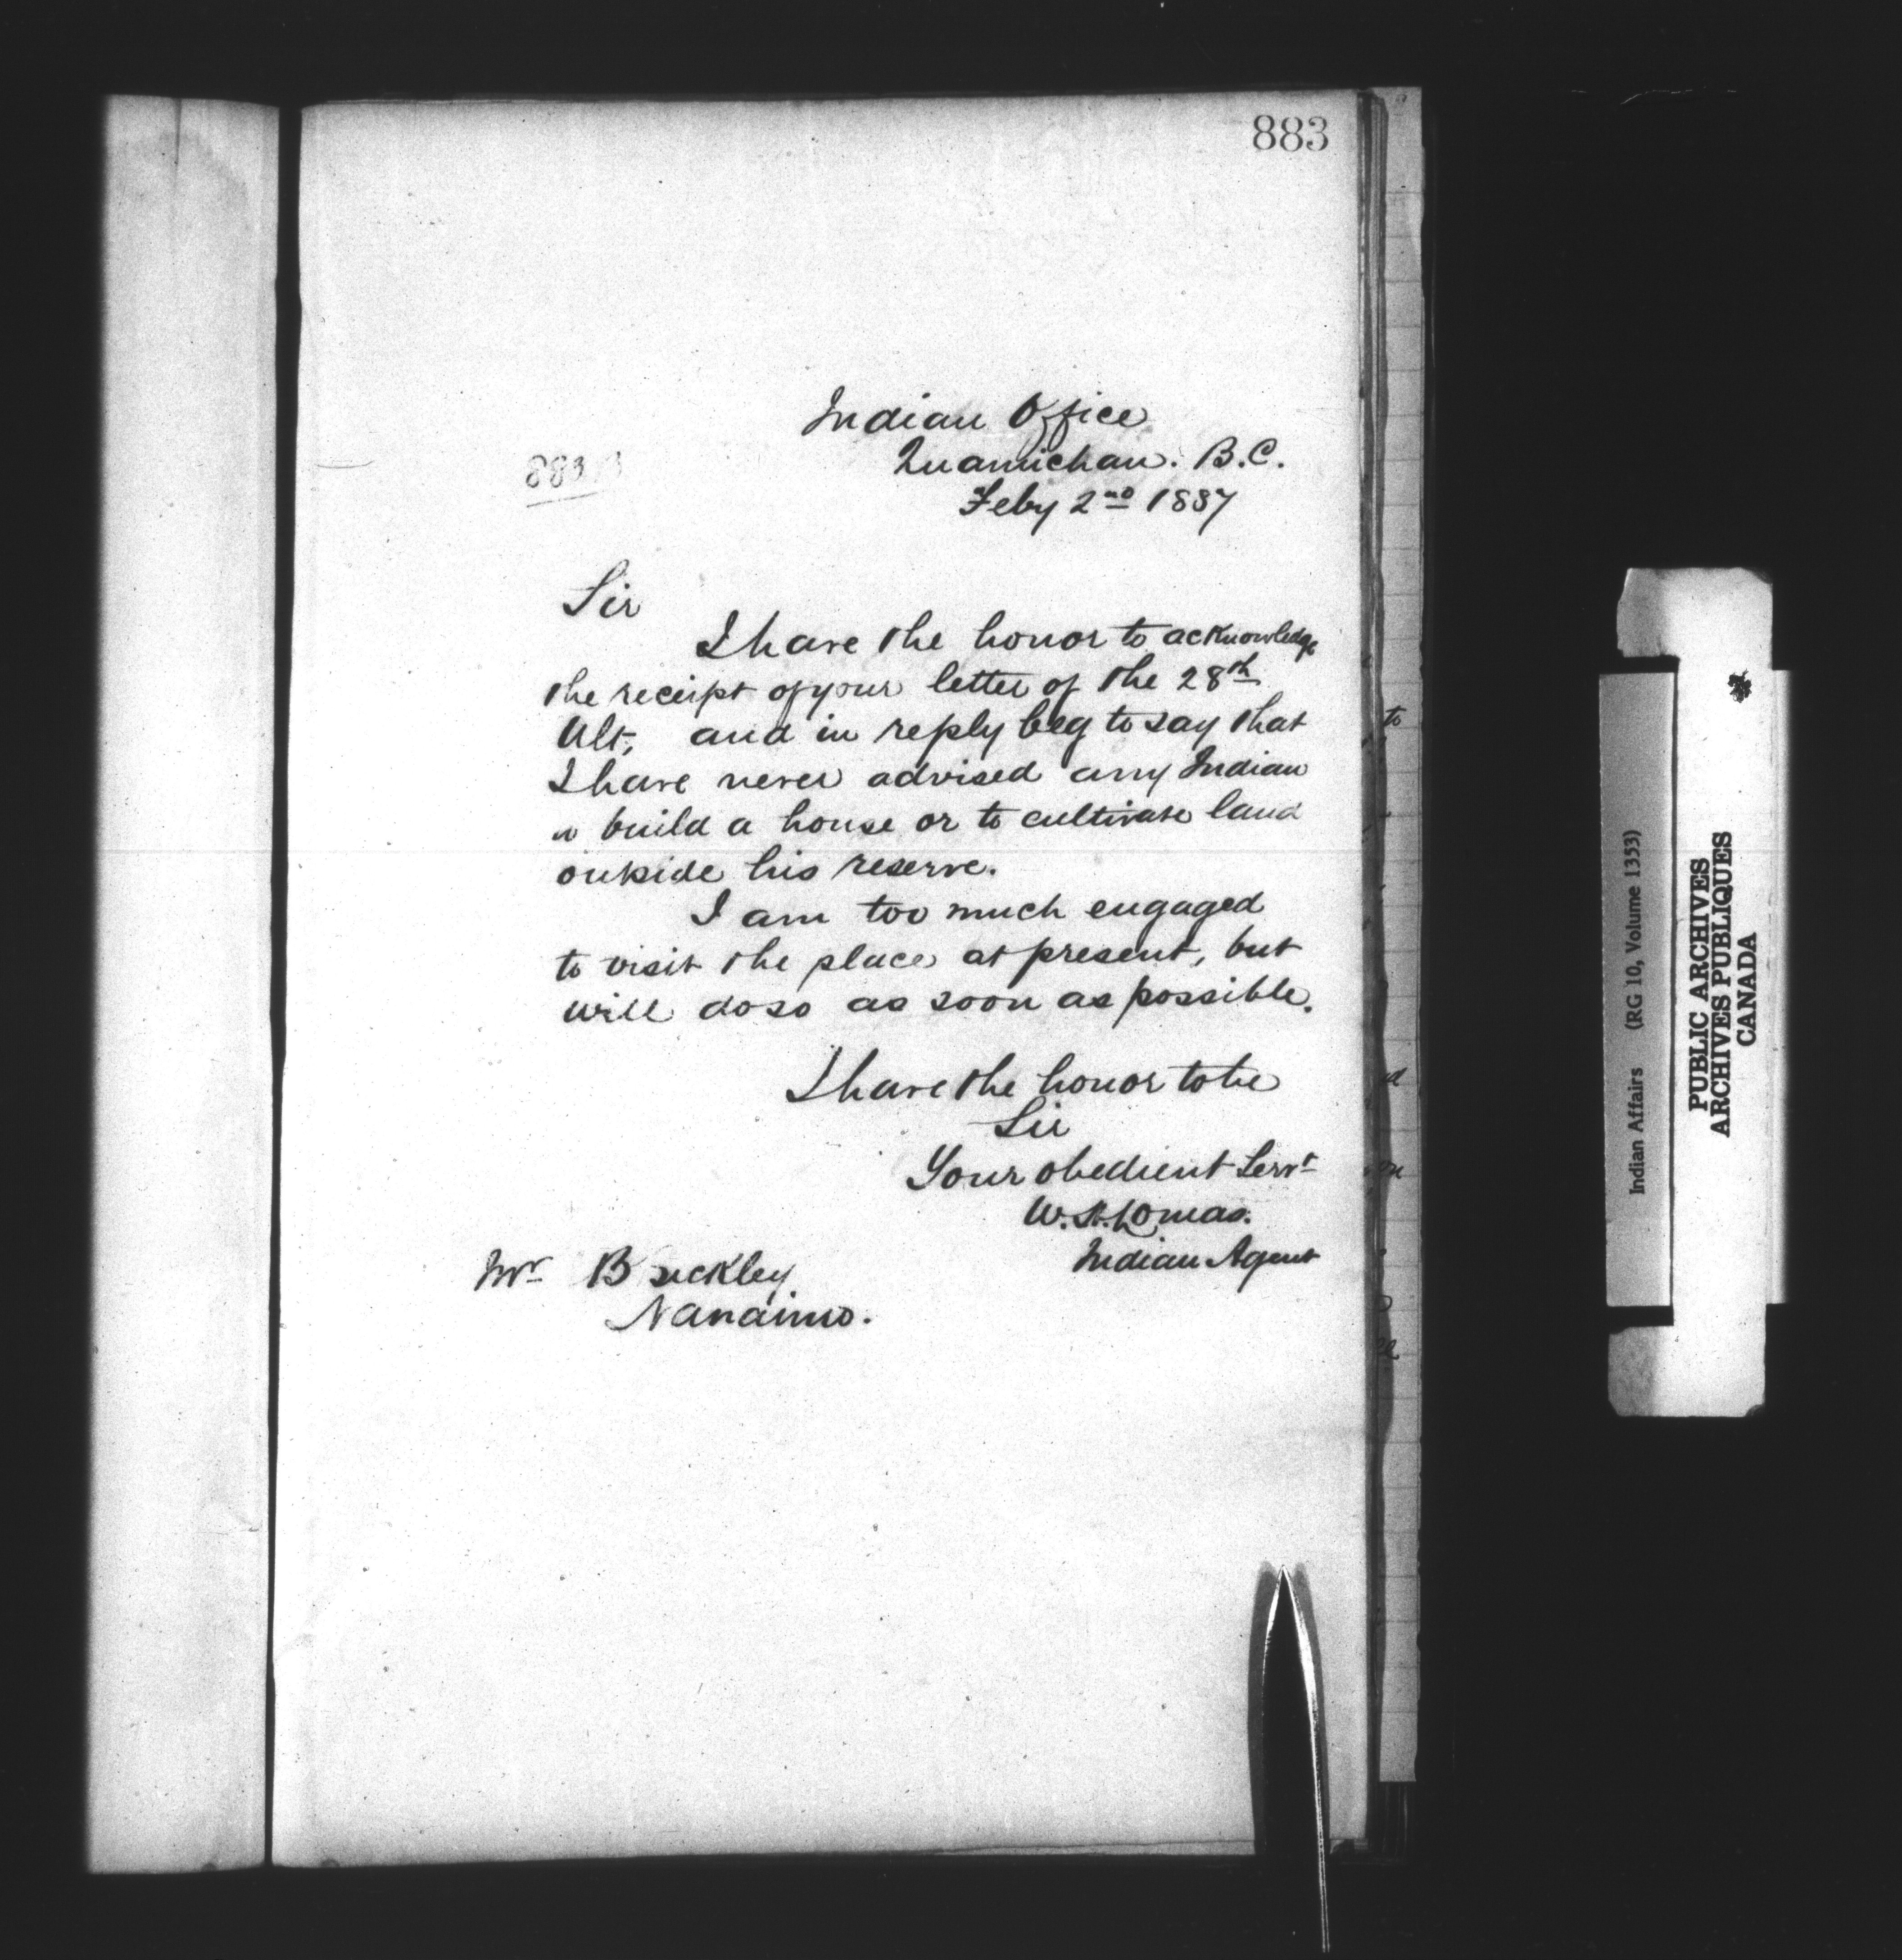 883
Indian Office
Quamichan. B.C.
Feby 2nd 1887
Sir
I have the honor to acknowledge
the receipt of your letter of the 28th
Ult, and in reply beg to say that
I have never advised any Indian
to build a house or to cultivate land
outside his reserve.
I am too much engaged
to visit the place at present, but
will do so as soon as possible.
I have the honor to be
Sir
Your obedient Servt
W. H. Lomas.
Indian Agent
Mr Buckley
Nanaimo.
Indian Affairs (RG 10, Volume 1353)
PUBLIC ARCHIVES
ARCHIVES PUBLIQUES
CANADA